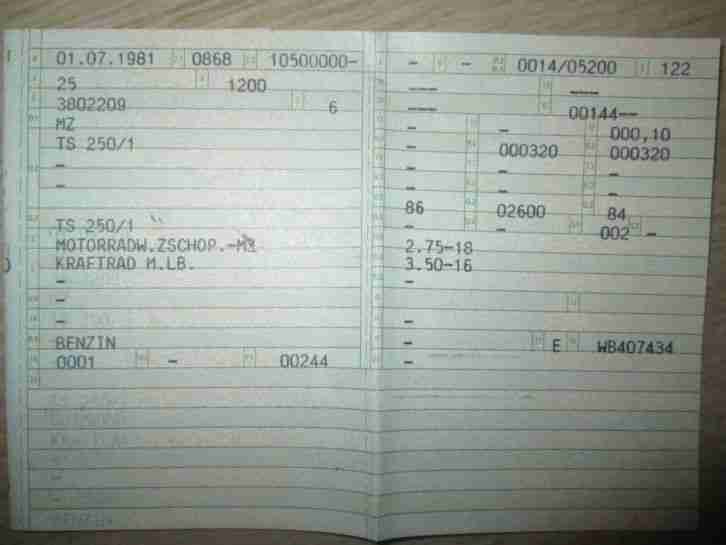 01.07.1981 0868 10500000-
25 1200
3802209 6
MZ
TS 250/1
-
-
TS 250/1
MOTORRADW.ZSCHOP.-MZ
KRAFTRAD M.LB.
-
-
-
BENZIN
0001 - 00244
- - 0014/05200 122
--- ---
--- 00144--
- - 000,10
- 000320 000320
- - -
- - -
86 02600 84
- - 002 -
2.75-18
3.50-16
-
-
- E WB407434
-